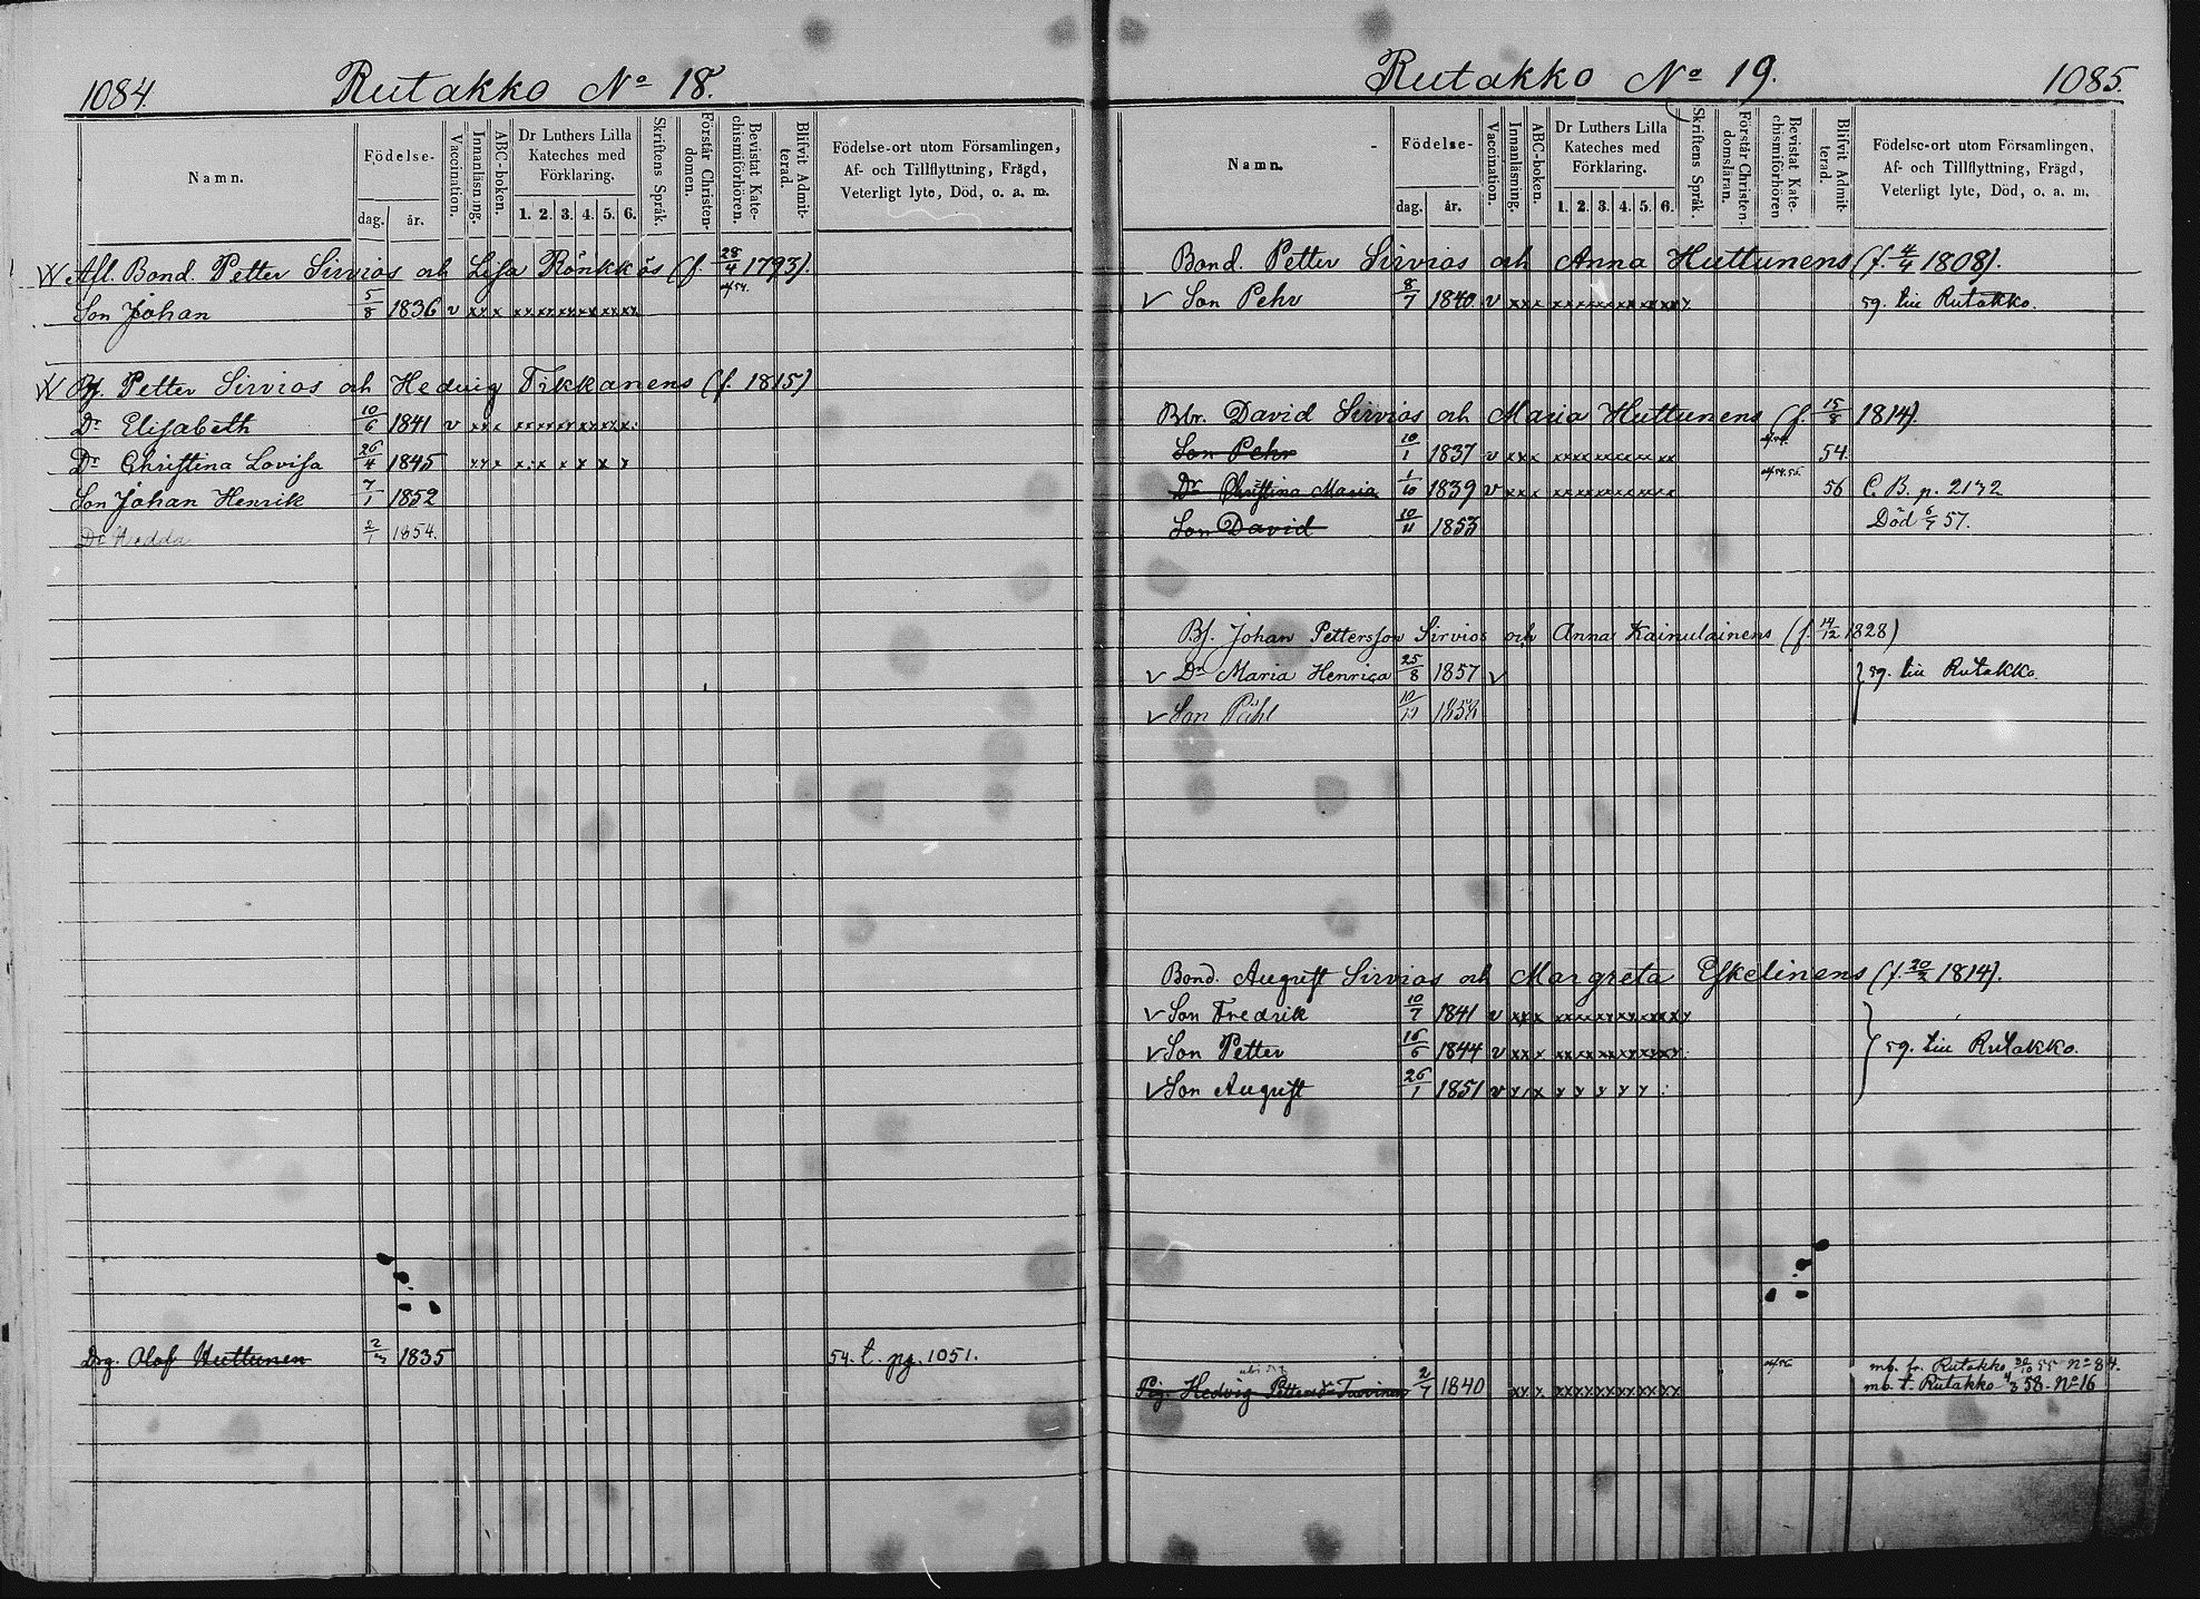 1084. Rutakko No 18.
Namn. Födelse- dag. år. Vaccination. Innanläsning. ABC-boken. Dr Luthers Lilla Kateches med Förklaring. 1. 2. 3. 4. 5. 6. Skriftens Språk. Förstår Christendomen. Bevistat Katechismiförhören. Blifvit Admitterad. Födelse-ort utom Församlingen, Af- och Tillflyttning, Frägd, Veterligt lyte, Död, o. a. m.
Afl. Bond. Petter Sirviös och Lisa Rönkkös (f. 28/4 1793).
Son Johan 5/8 1836 v
Petter Sirviös och Hedvig Tikkanens (f. 1815)
Dr Elisabeth 10/6 1841 v
Dr Christina Lovisa 26/4 1845
Son Johan Henrik 7/1 1852
Dr Hedda 2/1 1854.
Drg. Olof Huttunen 1835 54. t. pg. 1051.
Rutakko No 19. 1085.
Namn. Födelse- dag. år. Vaccination. Innanläsning. ABC-boken. Dr Luthers Lilla Kateches med Förklaring. 1. 2. 3. 4. 5. 6. Skriftens Språk. Förstår Christendomsläran. Bevistat Katechismiförhören Blifvit Admitterad. Födelse-ort utom Församlingen, Af- och Tillflyttning, Frägd, Veterligt lyte, Död, o. a. m.
Bond. Petter Sirviös och Anna Huttunens (f. 4/4 1808).
v Son Pehr 8/7 1840 v 59. Rutakko.
Bbr. David Sirviös och Maria Huttunens (f. 15/8 1814).
Son Pehr 10/1 1837 v 54.
Dr Christina Maria 1/10 1839 v 56 C. B. p. 2132
Son David 10/11 1853 Död 57.
Bf. Johan Pettersson Sirviös och Anna Kainulainens (f. 14/12 1828)
v Dr Maria Henrica 25/8 1857 v 59. Rutakko.
v Son Påhl 1858
Bond. August Sirviös och Margreta Eskelinens (f. 20/2 1814).
v Son Fredrik 10/7 1841 v
v Son Petter 16/6 1844 v 59. Rutakko.
v Son August 26/1 1851 v
mb. fr. Rutakko 55 No 84.
Pig. Hedvig 2/7 1840 mb. t. Rutakko 58. No 16